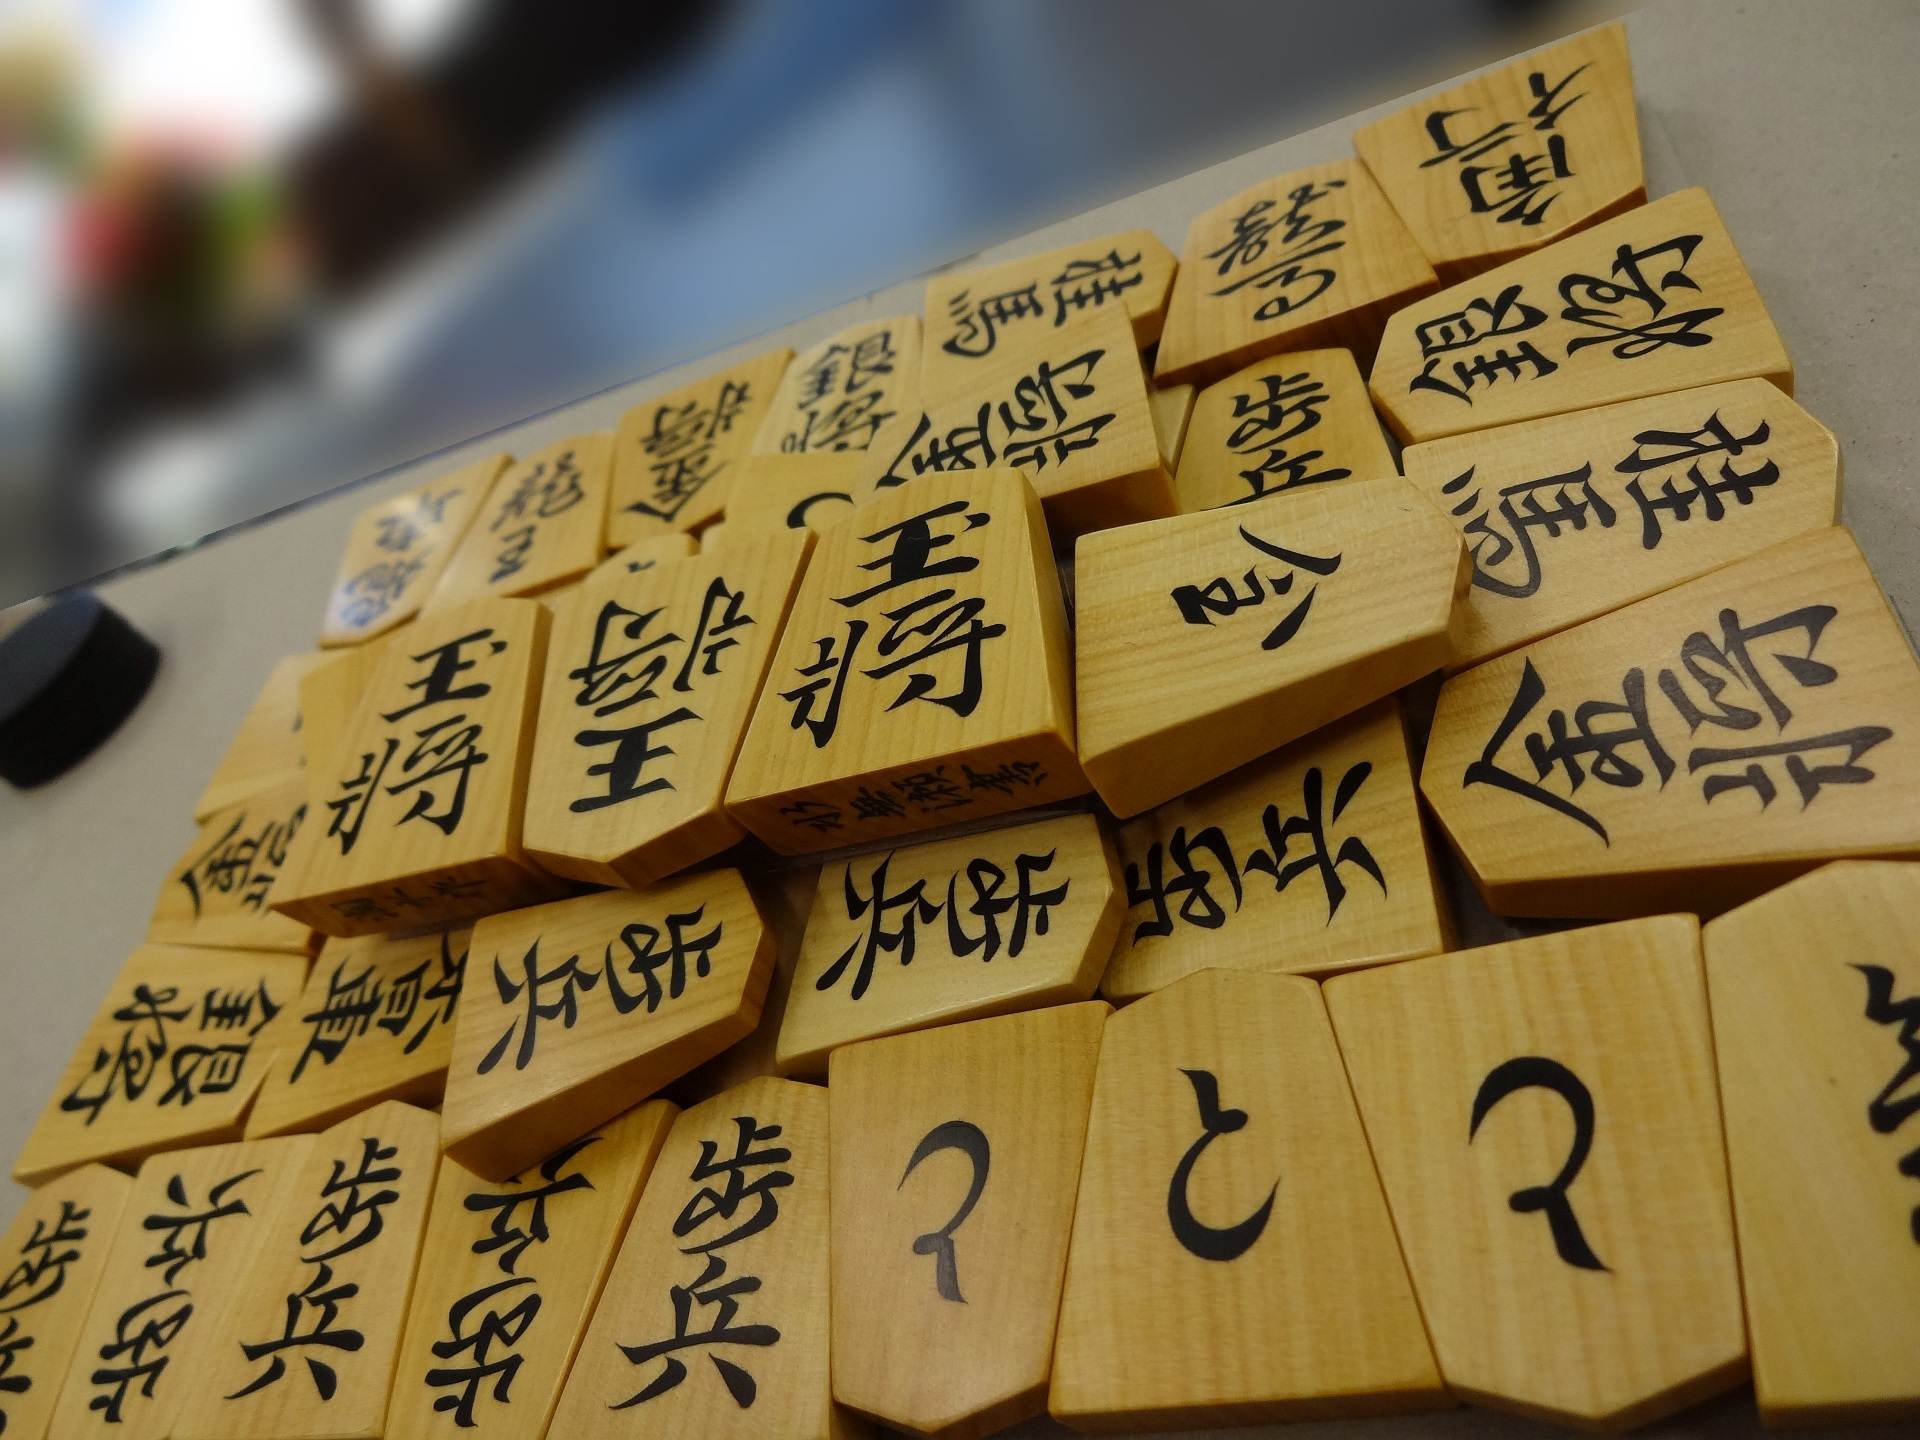 角行
龍王
桂馬
銀将
銀将
金将
歩兵
桂馬
金将
金将
香車
玉将
王将
玉将
金
歩兵
歩兵
歩兵
金将
銀将
香車
歩兵
歩兵
歩兵
歩兵
歩兵
と
と
と